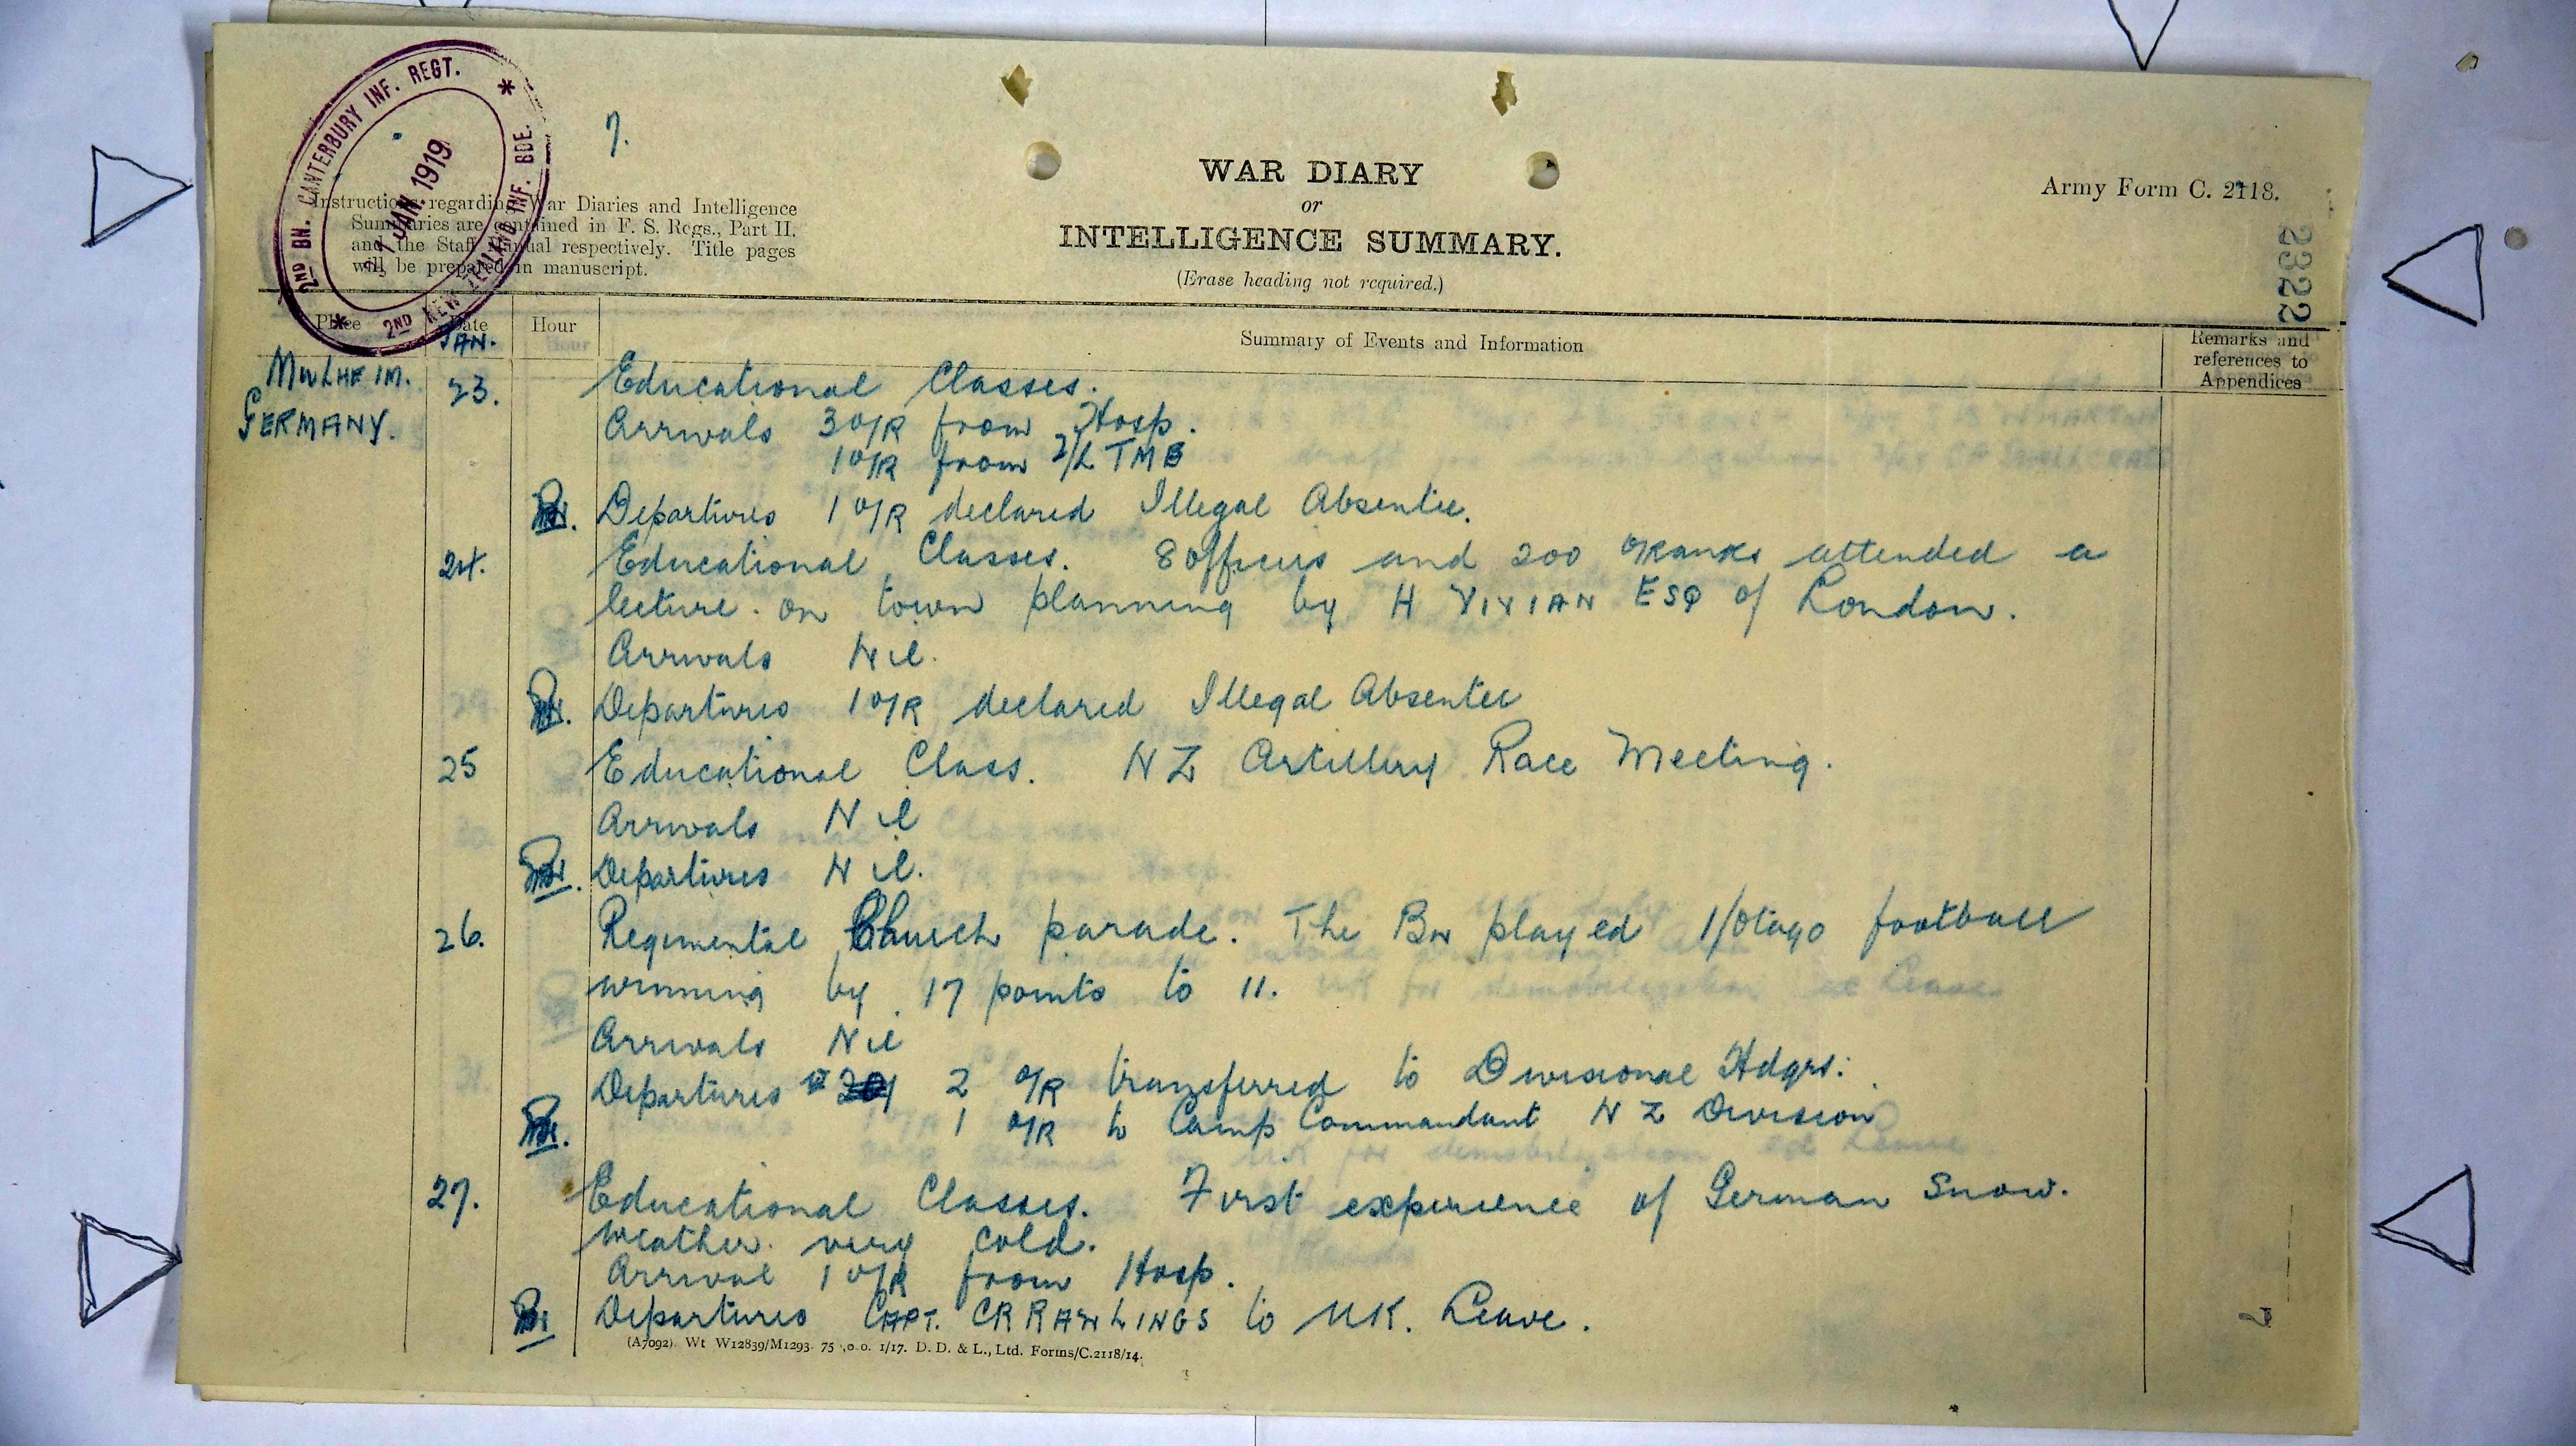 2ND BN. CANTERBURY INF. REGT. *
2ND NEW ZEALAND INF. BDE. *
JAN. 1919
7.
Instructions regarding War Diaries and Intelligence
Summaries are contained in F. S. Regs., Part II.
and the Staff Manual respectively. Title pages
will be prepared in manuscript.
WAR DIARY
or
INTELLIGENCE SUMMARY.
(Erase heading not required.)
Army Form C. 2118.
2322
Place
Date
Hour
Summary of Events and Information
Remarks and
references to
Appendices
JAN.
MULHEIM.
GERMANY.
23. Educational Classes.
Arrivals 3 O/R from Hosp.
1 O/R from 2/L TMB
Departures 1 O/R declared Illegal Absentee.
24. Educational Classes. 8 Officers and 200 O/Ranks attended a
lecture on town planning by H VIVIAN ESQ of London.
Arrivals Nil.
Departures 1 O/R declared Illegal Absentee
25 Educational Class. NZ Artillery Race Meeting.
Arrivals Nil
Departures Nil.
26. Regimental Church parade. The Bn played 1/Otago football
winning by 17 points to 11.
Arrivals Nil
Departures 2 O/R transferred to Divisional Hdqrs.
1 O/R to Camp Commandant NZ Division
27. Educational Classes. First experience of German Snow.
Weather very cold.
Arrival 1 O/R from Hosp.
Departures CAPT. CR RAWLINGS to UK. Leave.
(A7092). Wt W12839/M1293. 75 ,0.0. 1/17. D. D. & L., Ltd. Forms/C.2118/14.
7